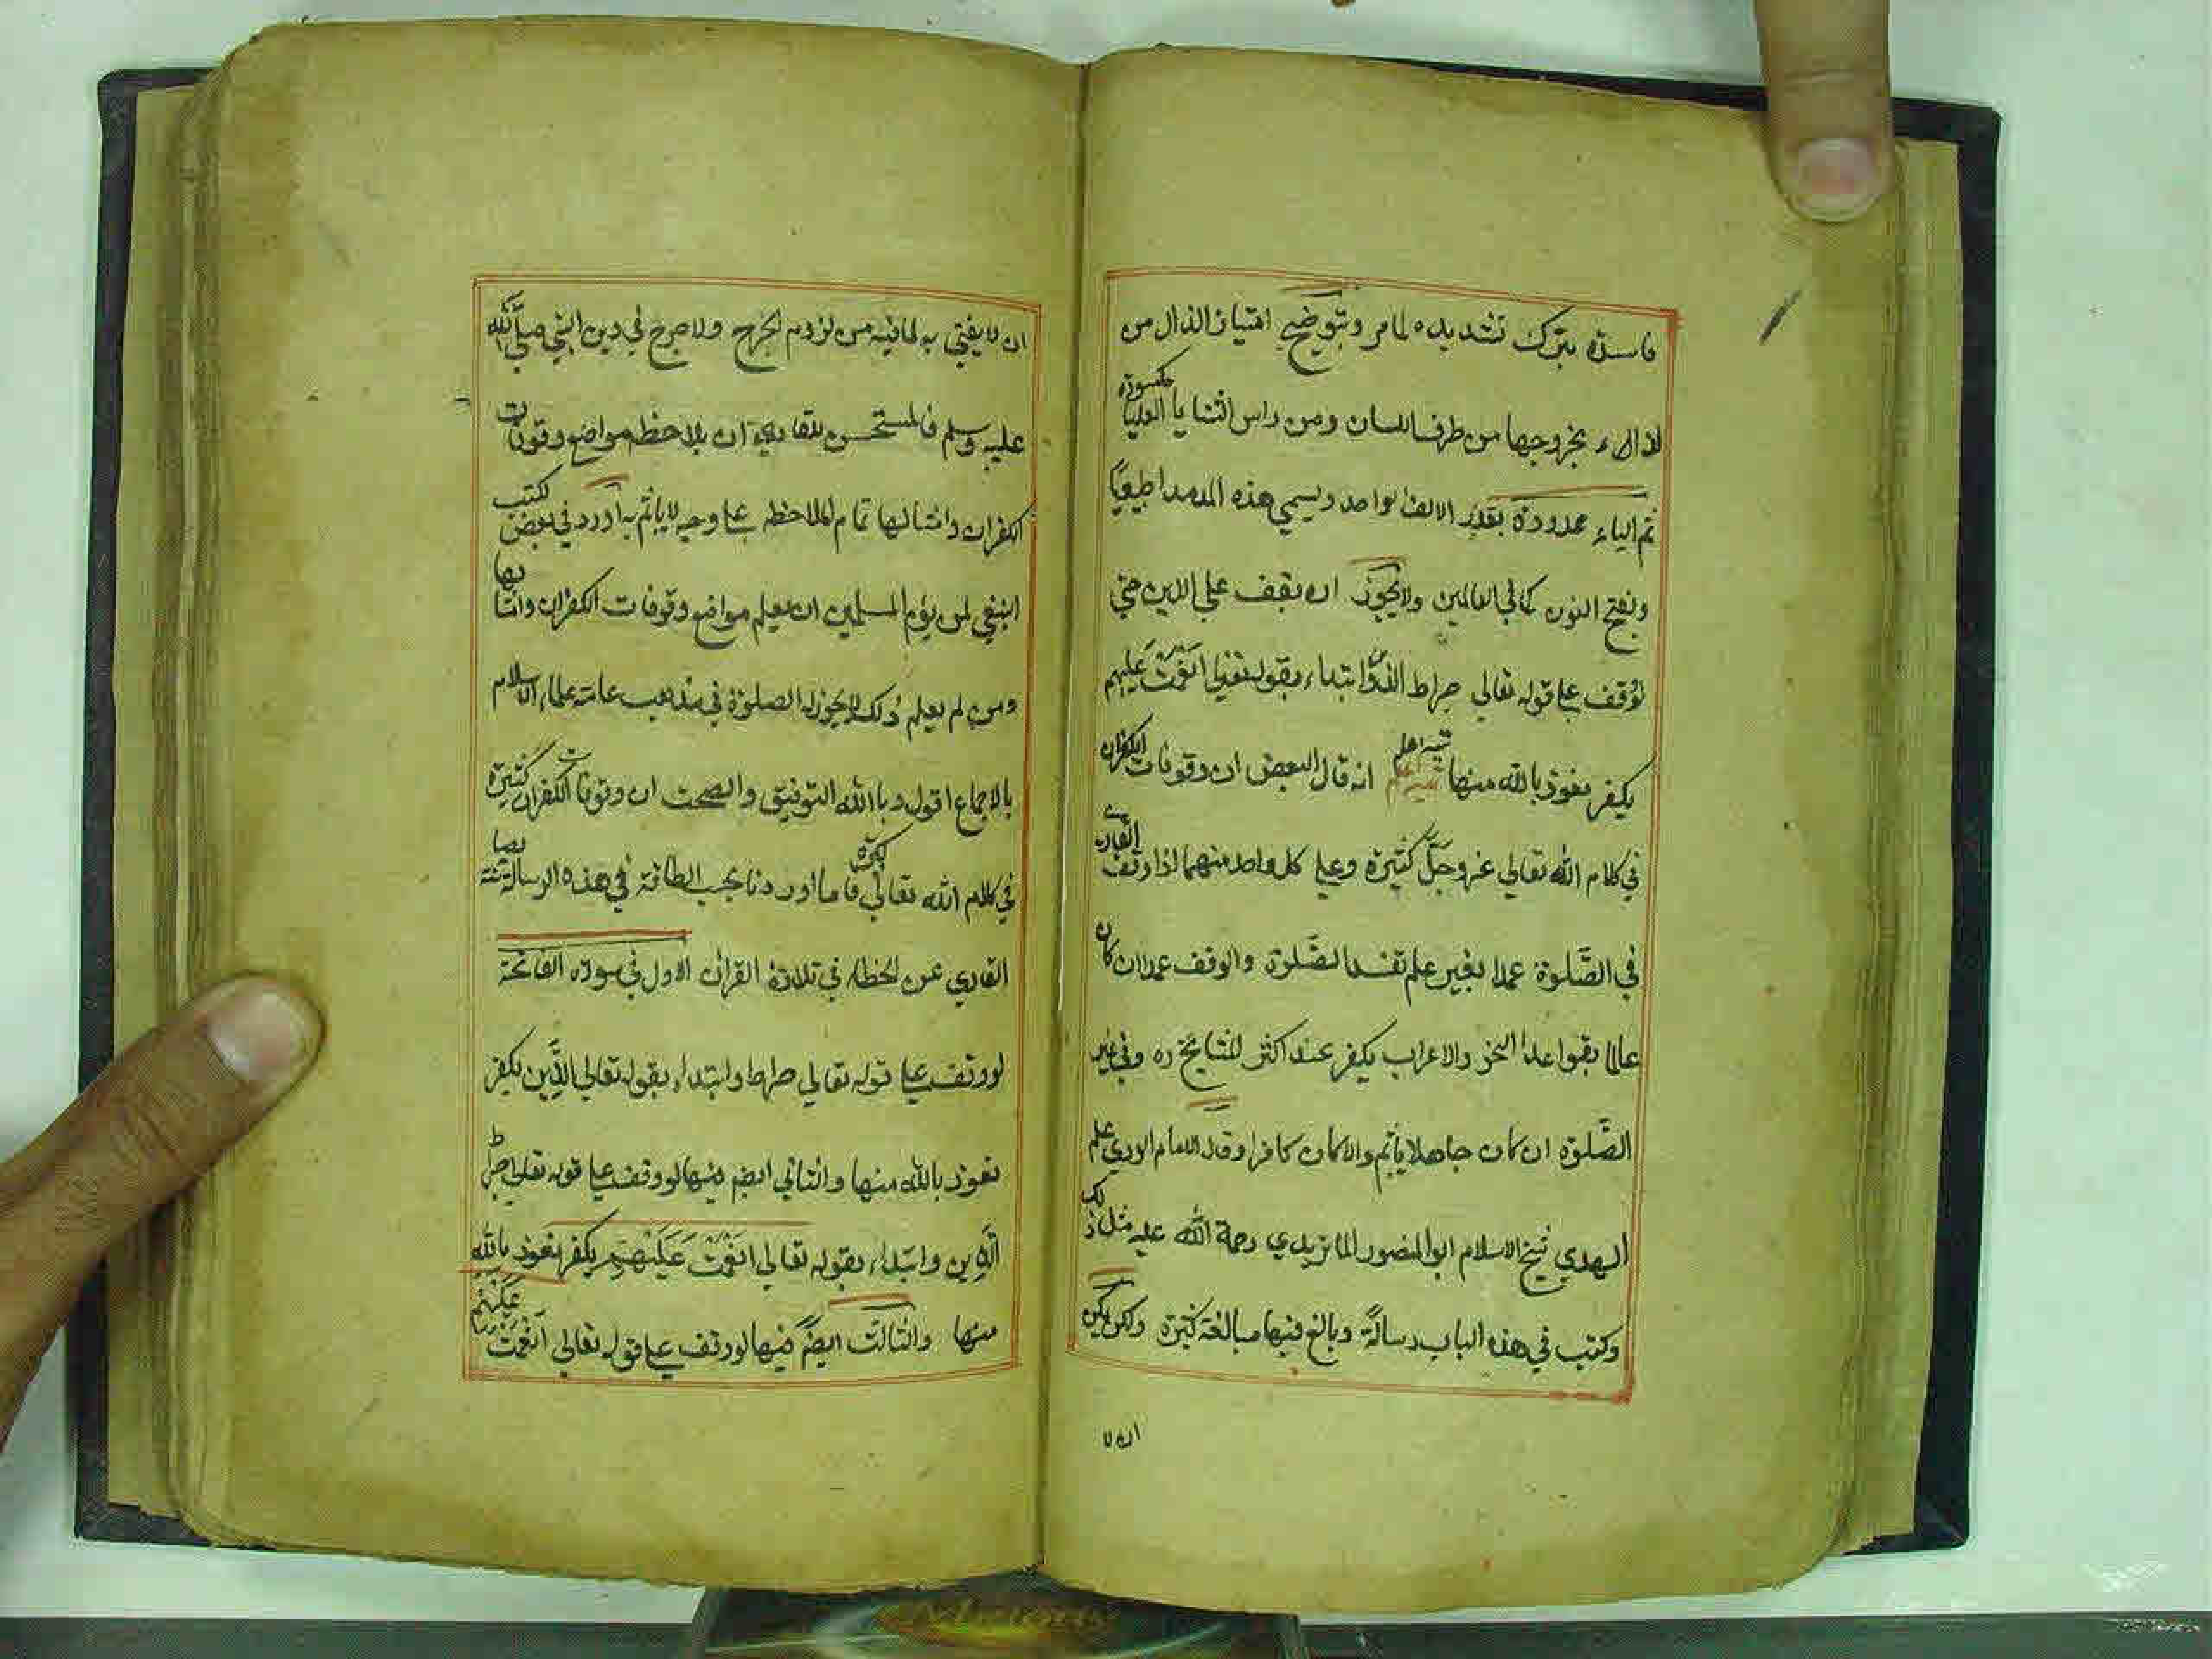 فاسدة بترك تشديده لما مر وبتوضيح امتياز الذال من
الظاء بخروجها من طرف اللسان ومن راس الثنايا العليا مكسورة
ثم الياء ممدودة بقدر الالف لواحد ويسمي هذه المد مدا طبيعيا
وبفتح النون كما في العالمين ولا يجوز ان يقف علي الذين حتي
لو وقف علي قوله تعالي صراط الذين وابتداء بقوله تعالي انعمت عليهم
يكفر نعوذ بالله منها تنبيه اعلم انه قال البعض ان وقوفات الكفران
في كلام الله تعالي عز وجل كثيرة وعلي كل واحد منهما اذا وقف القارئ
في الصلوة عمدا بغير علم تفسد الصلوة والوقف عمدا ان كان
عالما بقواعد النحو والاعراب يكفر عند اكثر المشايخ ره وفي غير
الصلوة ان كان جاهلا يأثم والا كان كافرا وقال الامام الوري علم
الهدي شيخ الاسلام ابو المنصور الماتريدي رحمة الله عليه مثل ذلك
وكتب في هذه الباب رسالة وبالغ فيها مبالغة كثيرة ولكن يمكن
ان لا
ان لا يفتي به لما فيه من لزوم الحرج ولا حرج في دين النبي صلي الله
عليه وسلم فالمستحسن للقاري ان يلاحظ مواضع وقوفات
الكفران وامثالها تمام الملاحظة علي وجه لا يأثم به اورد في بعض الكتب
ابنبغي لمن يؤم المسلمين ان يعلم مواضع وقوفات الكفران وامثالها
ومن لم يعلم ذلك لا يجوز له الصلوة في مذهب عامة علماء الاسلام
بالاجماع اقول وبا الله التوفيق والصحت ان وقوفات الكفران كثيرة
في كلام الله تعالي فاما اوردنا بحسب الطاقة في هذه الرسالة
القاري عن الخطاء في تلاوة القران الاول في سورة الفاتحة
لو وقف علي قوله تعالي صراط وابتداء بقوله تعالي الذين يكفر
نعوذ بالله منها والثاني ايضم فيها لو وقف علي قوله تعالي صراط
الذين وابتداء بقوله تعالي انعمت عليهم يكفر نعوذ بالله
منها والثالث ايضم فيها لو وقف علي قوله تعالي انعمت عليهم